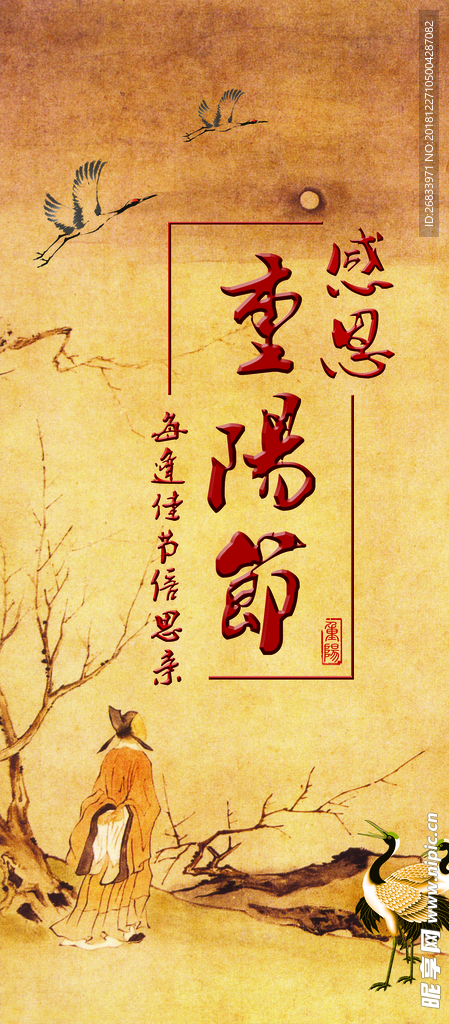 感恩
重陽節
每逢佳节倍思亲
重陽
ID:26833971 NO:20181227105004287082
昵享网 www.nipic.cn